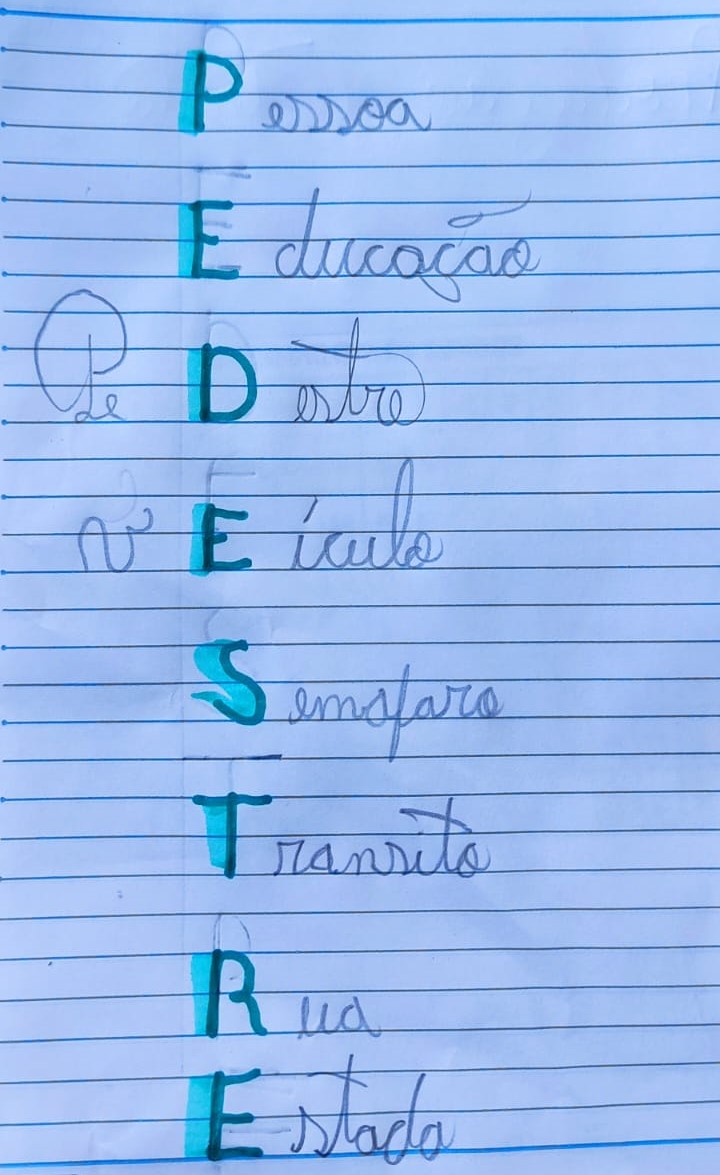 Pessoa
Educação
PeDestre
vEículo
Semafaro
Transito
Rua
Estada